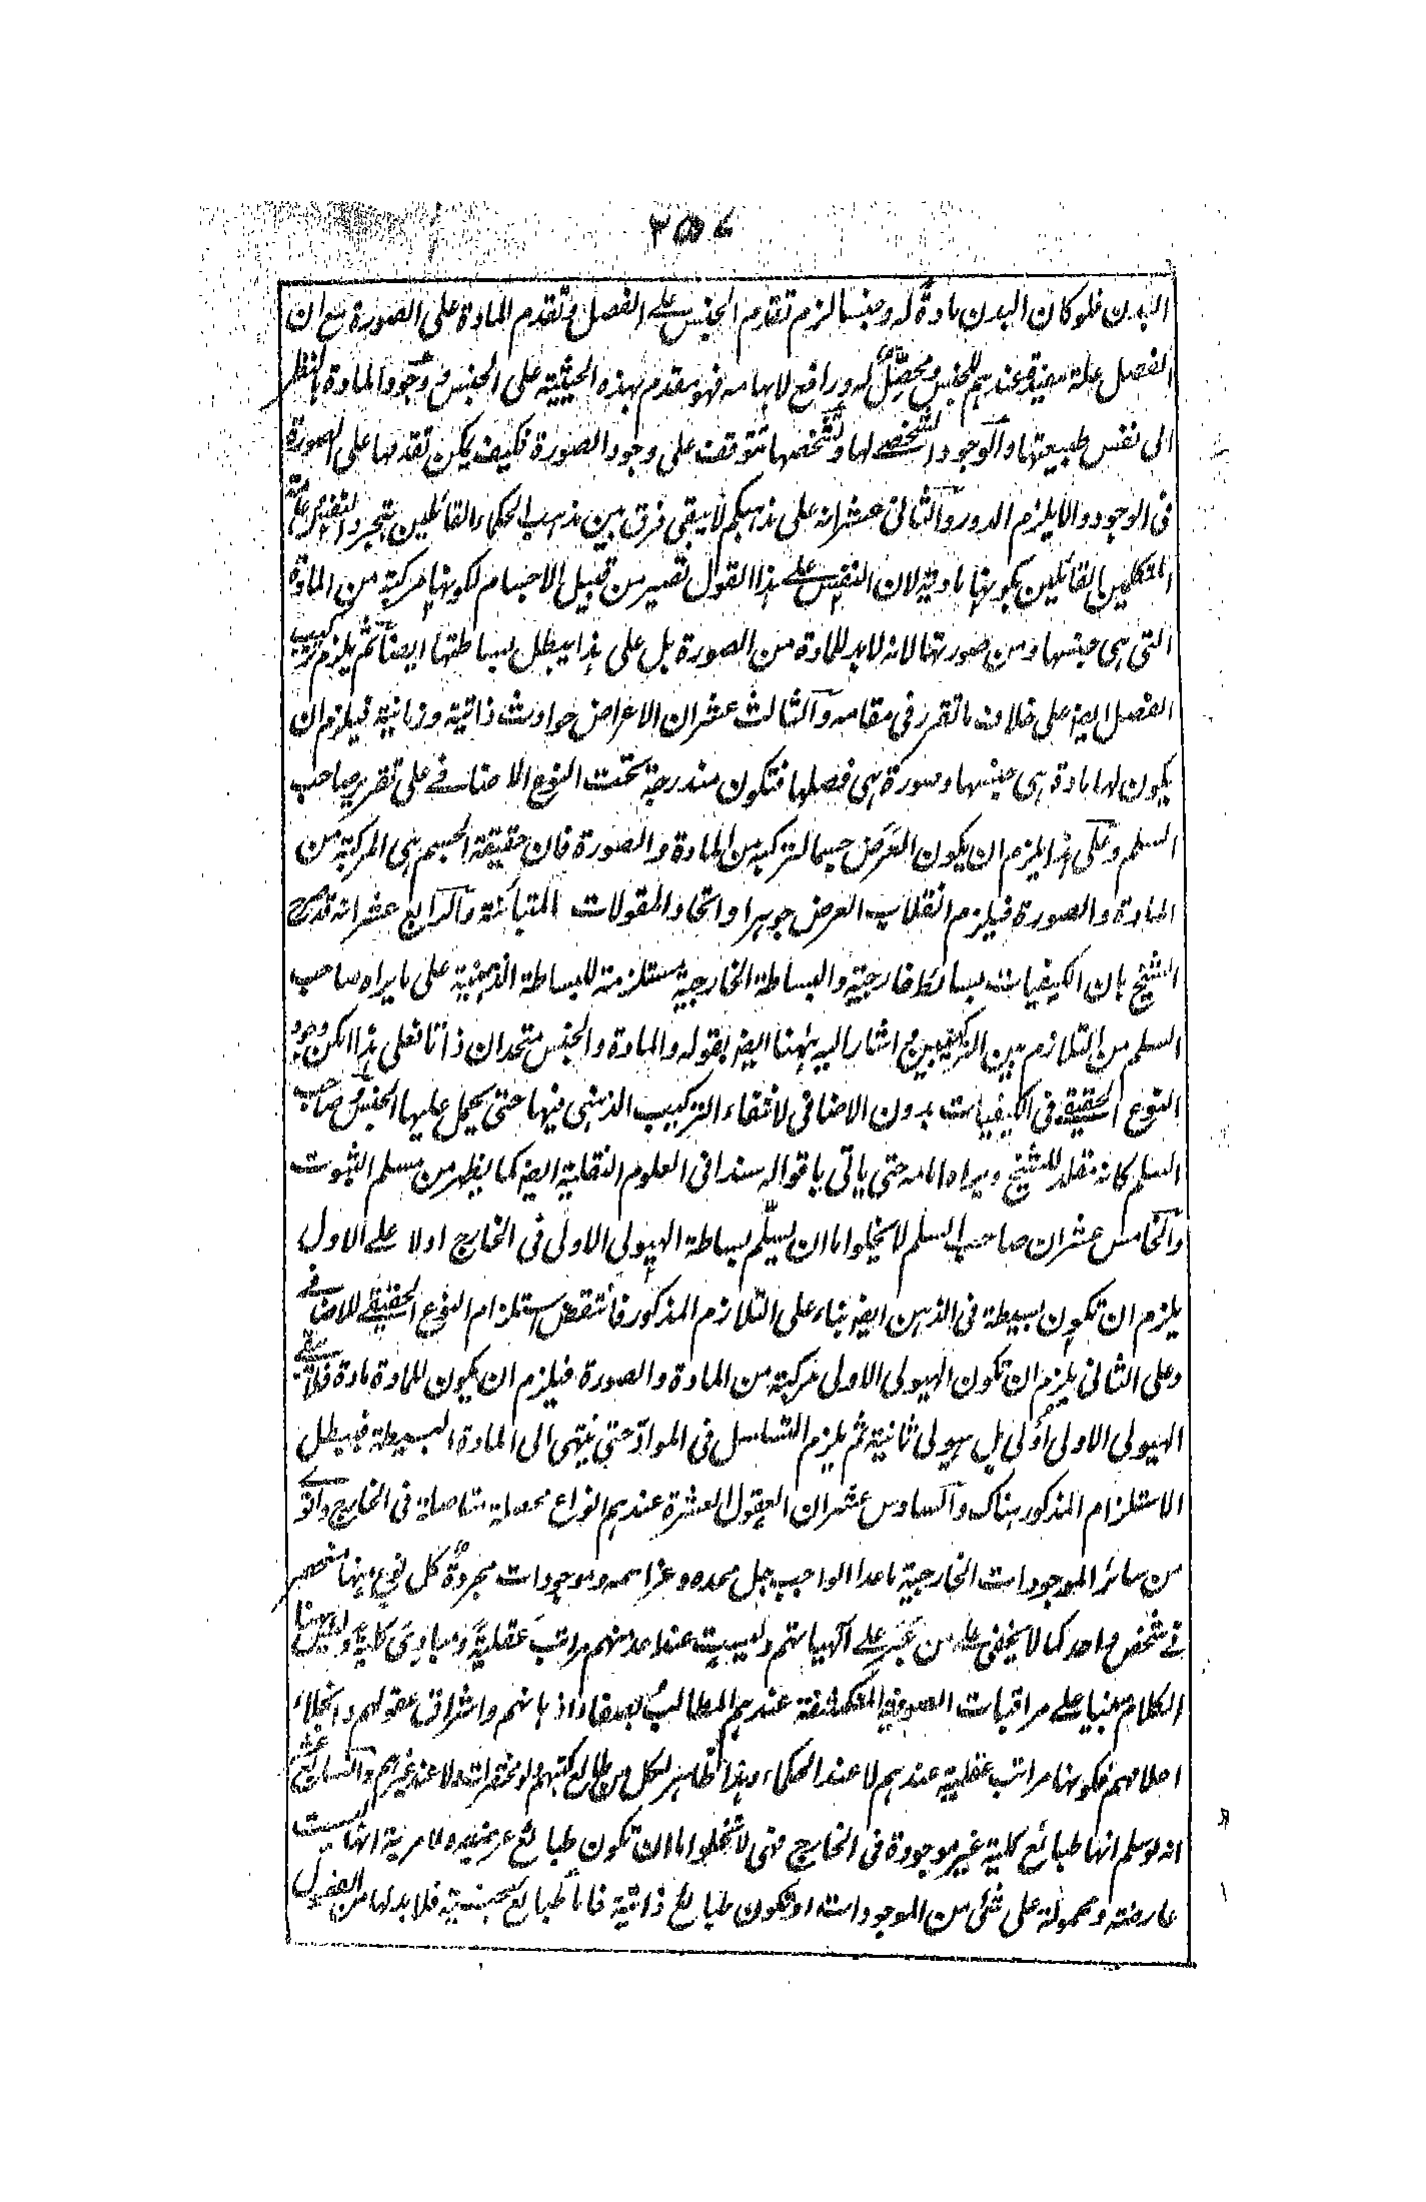 ٢٥٧
البدن فلو كان البدن مادة له وجنسا لزم تقدم الجنس على الفصل وتقدم المادة على الصورة مع ان
الفصل علة مفيدة عندهم للجنس ومحصِّل له ورافع لابهامه فهو مقدم بهذه الحيثية على الجنس ووجود المادة بالنظر
الى نفس طبيعتها والوجود الشخصي لها وتشخصها تتوقف على وجود الصورة فكيف يمكن تقدمها على الصورة
فى الوجود والا يلزم الدور والثانى عشر انه على مذهبكم لا يبقى فرق بين مذهب الحكماء القائلين بتجرد النفس وعامة
المتكلمين القائلين بكونها مادية لان النفس على هذا القول تصير من قبيل الاجسام لكونها مركبة من المادة
التى هى جنسها ومن صورتها لانه لا بد للمادة من الصورة بل على هذا يبطل بساطتها ايضاً ثم يلزم تركيب
الفصل ايضا على خلاف ما تقرر فى مقامه والثالث عشر ان الاعراض حوادث ذاتية وزمانية فيلزم ان
يكون لها مادة هى جنسها وصورة هى فصلها فتكون مندرجة تحت النوع الاضافي على تقرير صاحب
السلم وعلى هذا يلزم ان يكون العرض جسما لتركبه من المادة والصورة فان حقيقة الجسم هى المركبة من
المادة والصورة فيلزم انقلاب العرض جوهرا واتحاد المقولات المتبائنة والرابع عشر انه قد صرح
الشيخ بان الكيفيات بسائط خارجية والبساطة الخارجية مستلزمة للبساطة الذهنية على ما يراه صاحب
السلم من التلازم بين التركيبين واشار اليه ههنا ايضا بقوله والمادة والجنس متحدان ذاتا فعلى هذا امكن وجود
النوع الحقيقي فى الكيفيات بدون الاضافى لانتفاء التركيب الذهنى فيها حتى يحمل عليها الجنس وصاحب
السلم كانه مقلد للشيخ ويراه امامه حتى ياتى باقواله سندا فى العلوم النقلية ايضا كما يظهر من مسلم الثبوت
والخامس عشر ان صاحب السلم لا يخلو اما ان يسلّم بساطة الهيولى الاولى فى الخارج اولا على الاول
يلزم ان تكون بسيطة فى الذهن ايضا بناء على التلازم المذكور فانتقض استلزام النوع الحقيقي للاضافي
وعلى الثانى يلزم ان تكون الهيولى الاولى مركبة من المادة والصورة فيلزم ان يكون للمادة مادة فلا تبقى
الهيولى الاولى اُولى بل هيولى ثانية ثم يلزم التسلسل فى الموادّ حتى ينتهى الى المادة البسيطة فيبطل
الاستلزام المذكور هناك والسادس عشر ان العقول العشرة عندهم انواع محصلة متاصلة فى الخارج واقوى
من سائر الموجودات الخارجية ماعدا الواجب جل مجده وعز اسمه وموجودات مجردةٌ كل نوع منها منحصر
في شخص واحد كما لا يخفى على من عَبَر على آلهياتهم وليست عند احد منهم مراتبَ عقليةً ومباديَ كليةً وليس هنا
الكلام مبنيا على مراقبات الصوفية المنكشفة عندهم المطالبُ بصفاء اذهانهم واشراق عقولهم وانجلاء
احلامهم فكونها مراتب عقلية عندهم لا عند الحكماء وهذا ظاهر لكل من طالع كتبهم ولو مختصرات ولا عند غيرهم والسابع عشر
انه لو سلم انها طبائع كلية غير موجودة فى الخارج فهى لا تخلوا اما ان تكون طبائع عرضية ولا مرية انها ليست
عارضة ومحمولة على شئ من الموجودات او تكون طبائع ذاتية فاما طبائع جنسية فلا بد لها من الفصول